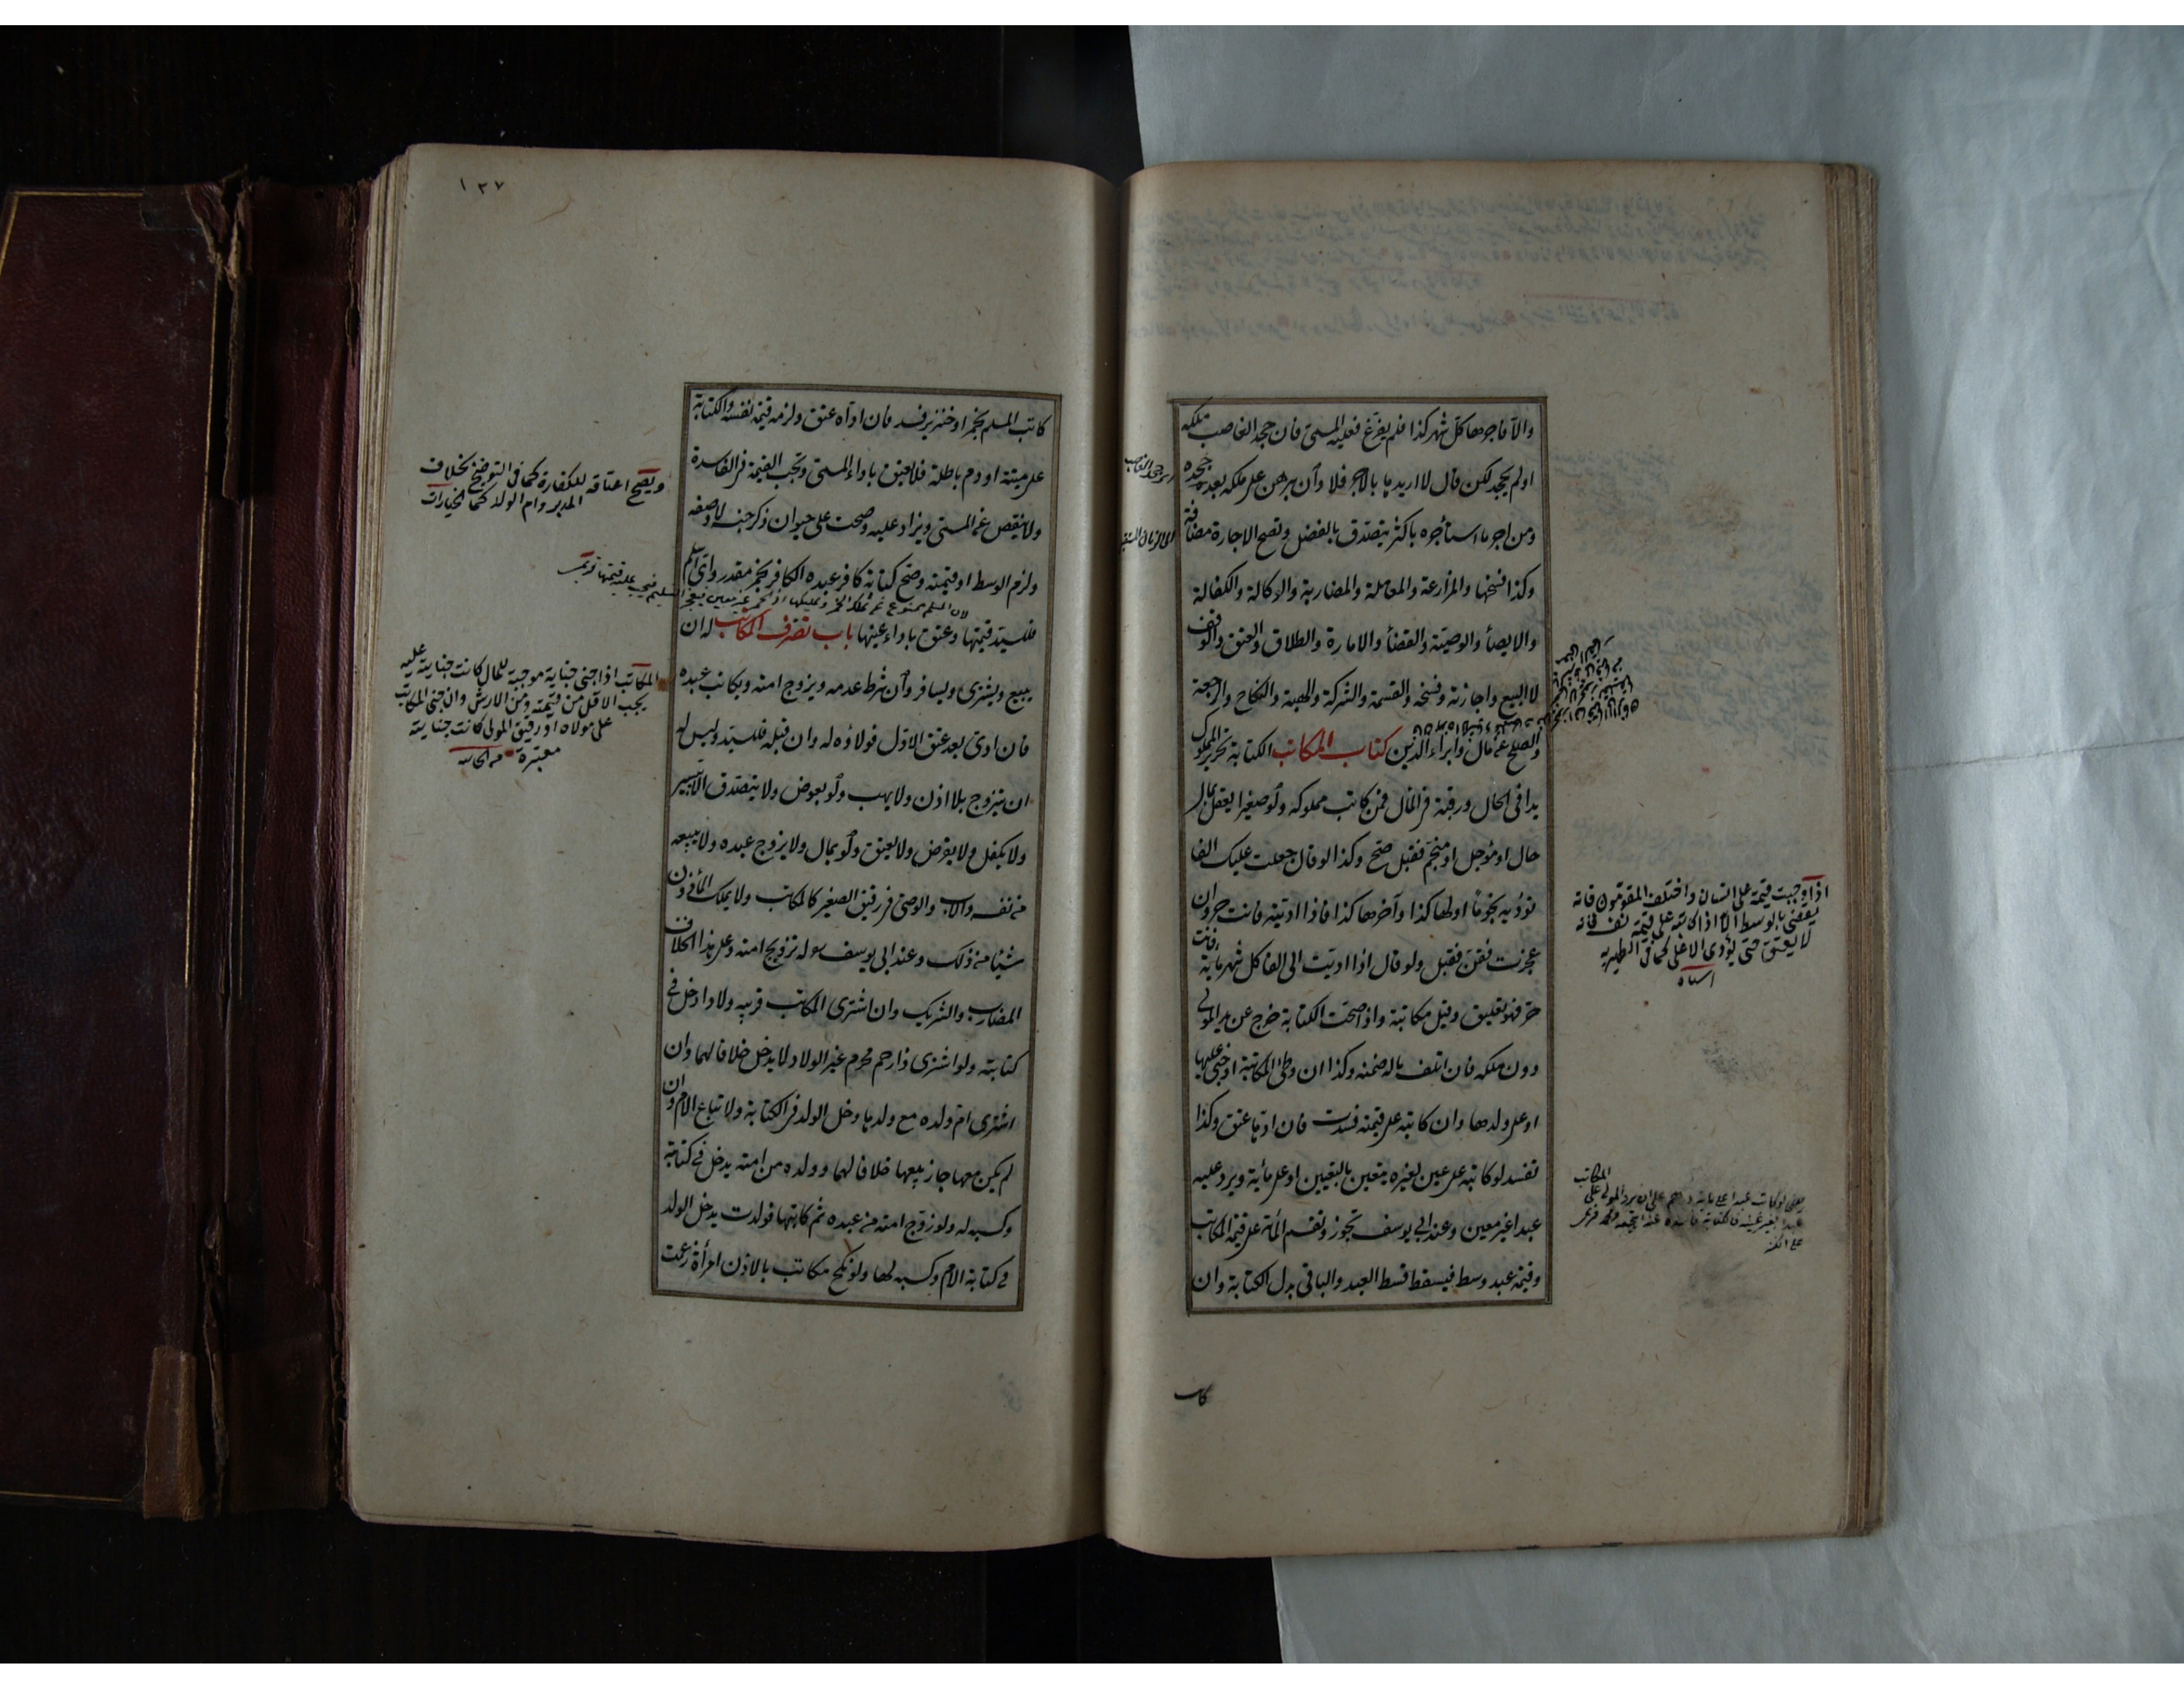 والا فاجرها كل شهر كذا فلم يفرغ فعليه المسمى فان جحد الغاصب ملكه
او لم يجحد لكن قال لا اريدها بالاجر فلا وان برهن على ملكه بعد جحده
ومن اجر ما استأجره باكثر يتصدق بالفضل وتصح الاجارة مضافة
وكذا فسخها والمزارعة والمعاملة والمضاربة والوكالة والكفالة
والايصأ والوصية والقضأ والامارة والطلاق والعتق والوقف
لا البيع واجازته وفسخه والقسمة والشركة والهبة والنكاح والرجعة
والصلح عن مال وابراء الدين كتاب المكاتب الكتابة تحرير المملوك
يدا فى الحال ورقبة فى المآل فمن كاتب مملوكه ولو صغيرا يعقل بمال
حال او مؤجل او منجم فقبل صح وكذا لو قال جعلت عليك الفا
تؤديه نجوما اولها كذا وآخرها كذا فاذا اديته فانت حر وان
عجزت فقن فقبل ولو قال اذا اديت الى الفا كل شهر مأية فانت
حر فهو تعليق وقيل مكاتبة واذا صحت الكتابة خرج عن يد المولى
دون ملكه فان اتلف ماله ضمنه وكذا ان وطئ المكاتبة او جنى عليها
او على ولدها وان كاتبه على قيمته فسدت فان اداها عتق وكذا
تفسد لو كاتبه على عين لغيره يتعين بالتعيين او على مأية ويرد عليه
عبدا غير معين وعند ابى يوسف تجوز وتقسم المأة على قيمة المكاتب
وقيمة عبد وسط فيسقط قسط العبد والباقى بدل الكتابة وان
كاتب
اذا وجبت قيمة على انسان واختلف المقومون فانه
يقضى بالوسط الا اذا كاتبه على قيمة نفسه فانه
لا يعتق حتى يؤدى الاعلى كما فى الظهيرية
اشباه
المكاتب
١٣٧
كاتب المسلم بخمر او خنزير فسد فان اداه عتق ولزمه قيمة نفسه والكتابة
على ميتة او دم باطلة فلا يعتق باداء المسمى وتجب القيمة فى الفاسدة
ولا ينقص عن المسمى ويزاد عليه وصحت على حيوان ذكر جنسه لا وصفه
ولزم الوسط او قيمته وصح كتابة كافر عبده الكافر بخمر مقدر واى اسلم
فلسيد قيمتها وعتق باداء عينها باب تصرف المكاتب له ان
يبيع ويشترى ويسافر وان شرط عدمه ويزوج امته ويكاتب عبده
فان ادى بعد عتق الاول فولاؤه له وان قبله فلسيده وليس له
ان يتزوج بلا اذن ولا يهب ولو بعوض ولا يتصدق الا بيسير
ولا يكفل ولا يقرض ولا يعتق ولو بمال ولا يزوج عبده ولا يبيعه
من نفسه والاب والوصى فى رقيق الصغير كالمكاتب ولا يملك المأذون
شيئا من ذلك وعند ابى يوسف له تزويج امته وعلى هذا الخلاف
المضارب والشريك وان اشترى المكاتب قريبه ولادا دخل فى
كتابته ولو اشترى ذا رحم محرم غير الولاد لا يدخل خلافا لهما وان
اشترى ام ولده مع ولدها دخل الولد فى الكتابة ولا تباع الام وان
لم يكن معها جاز بيعها خلافا لهما وولده من امته يدخل فى كتابته
وكسبه له ولو زوج امته من عبده ثم كاتبها فولدت يدخل الولد
فى كتابة الام وكسبه لها ولو نكح مكاتب بالاذن امرأة زعمت
ويصح اعتاقه للكفارة كما فى التوضيح بخلاف
المدبر وام الولد كما لخيارات
المكاتب اذا جنى جناية موجبة للمال كانت جنايته عليه
يجب الاقل من قيمته ومن الارش وان جنى المكاتب
على مولاه او رقيق المولى كانت جنايته
معتبرة